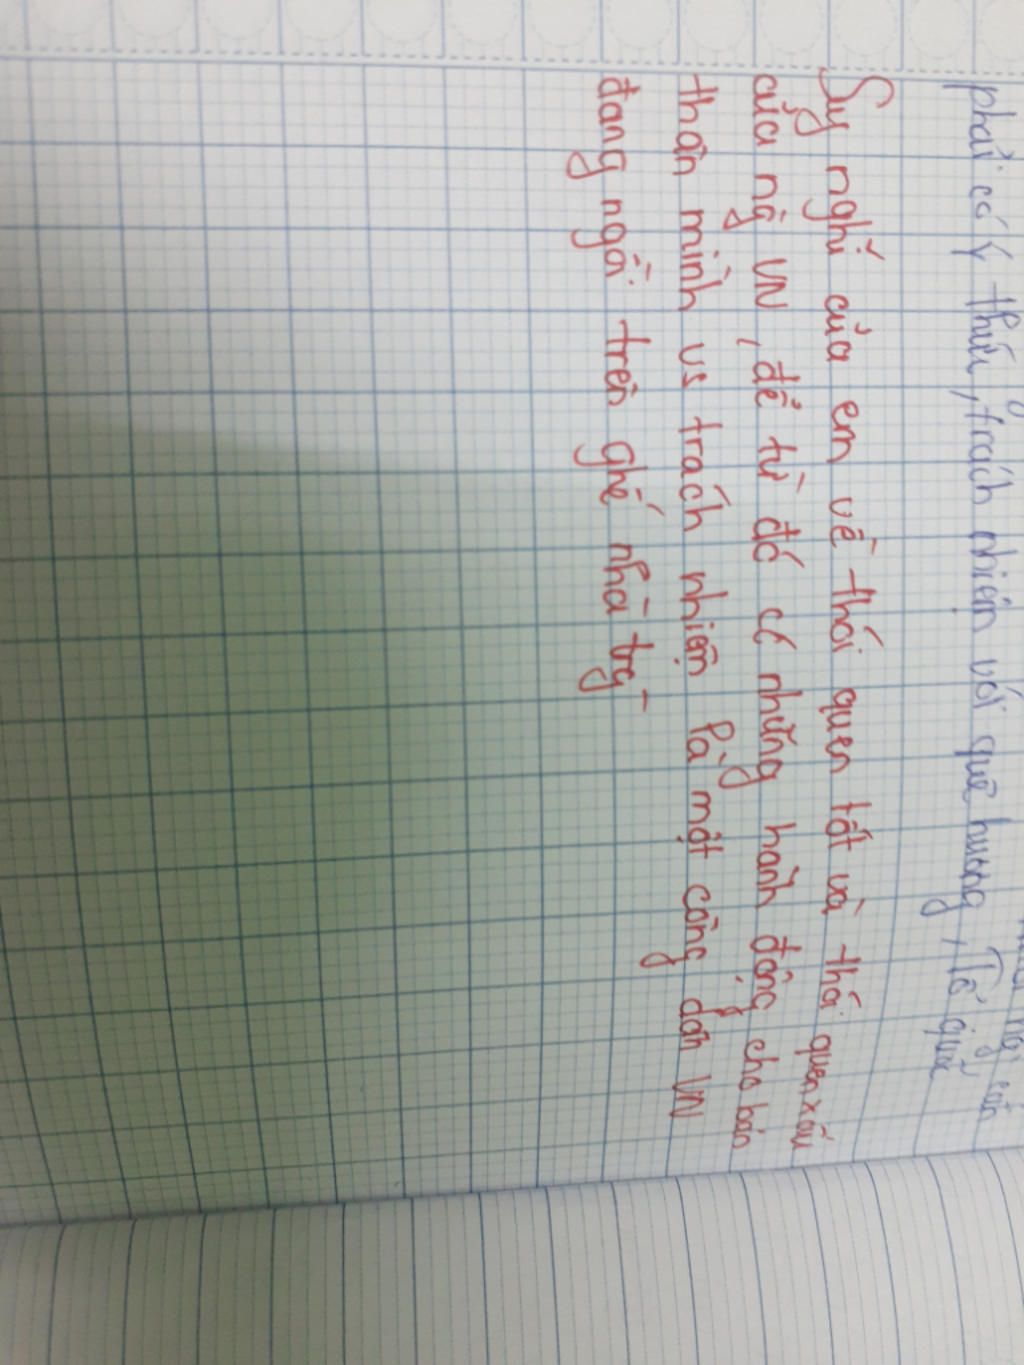 phải có ý thức, trách nhiệm với quê hương, Tổ quốc
Suy nghĩ của em về thói quen tốt và thói quen xấu
của ng VN, để từ đó có những hành động cho bản
thân mình vs trách nhiệm là một công dân VN
đang ngồi trên ghế nhà trg